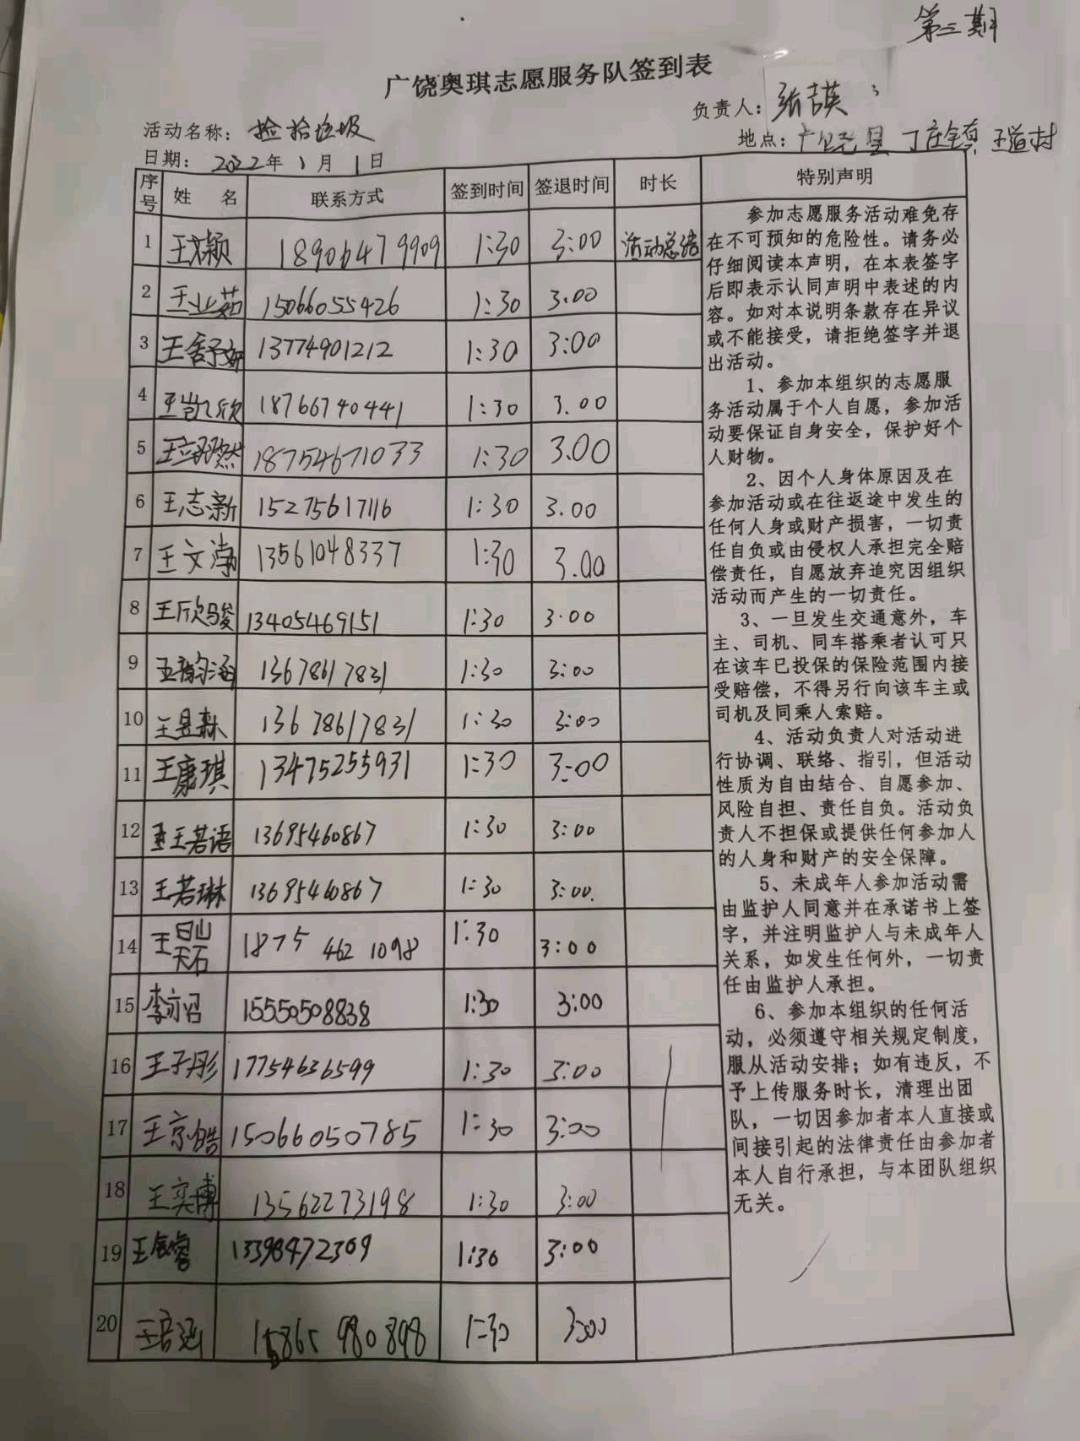 第三期
广饶奥琪志愿服务队签到表
负责人：张英
活动名称：捡拾垃圾
地点：广饶县丁庄镇王道村
日期：2022年1月1日
序号 姓 名 联系方式 签到时间 签退时间 时长 特别声明
1 王颖 18906479909 1:30 3:00 活动总结
2 王业茹 15066055426 1:30 3.00
3 王舒 13774901212 1:30 3:00
4 王欣 18766740441 1:30 3.00
5 王然 18754671033 1:30 3.00
6 王志新 15275617116 1:30 3.00
7 王文涛 13561048337 1:30 3.00
8 王欣骏 13405469151 1:30 3:00
9 涵 13678617831 1:30 3:00
10 王昱霖 13678617831 1:30 3:00
11 王康琪 13475255931 1:30 3:00
12 王若语 13695460867 1:30 3:00
13 王若琳 13695460867 1:30 3:00.
14 王 1875 462 1098 1:30 3:00
15 李亦 15550508838 1:30 3:00
16 王子彤 17754636599 1:30 3:00
17 王京皓 15066050785 1:30 3:00
18 王奕博 13562273198 1:30 3:00
19 王睿 13398472309 1:30 3:00
20 王涵 15865980898 1:30 3:00
参加志愿服务活动难免存
在不可预知的危险性。请务必
仔细阅读本声明，在本表签字
后即表示认同声明中表述的内
容。如对本说明条款存在异议
或不能接受，请拒绝签字并退
出活动。
1、参加本组织的志愿服
务活动属于个人自愿，参加活
动要保证自身安全，保护好个
人财物。
2、因个人身体原因及在
参加活动或在往返途中发生的
任何人身或财产损害，一切责
任自负或由侵权人承担完全赔
偿责任，自愿放弃追究因组织
活动而产生的一切责任。
3、一旦发生交通意外，车
主、司机、同车搭乘者认可只
在该车已投保的保险范围内接
受赔偿，不得另行向该车主或
司机及同乘人索赔。
4、活动负责人对活动进
行协调、联络、指引，但活动
性质为自由结合、自愿参加、
风险自担、责任自负。活动负
责人不担保或提供任何参加人
的人身和财产的安全保障。
5、未成年人参加活动需
由监护人同意并在承诺书上签
字，并注明监护人与未成年人
关系，如发生任何外，一切责
任由监护人承担。
6、参加本组织的任何活
动，必须遵守相关规定制度，
服从活动安排；如有违反，不
予上传服务时长，清理出团
队，一切因参加者本人直接或
间接引起的法律责任由参加者
本人自行承担，与本团队组织
无关。